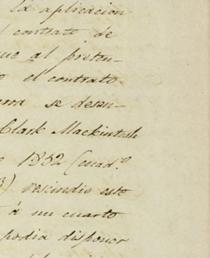 la aplicacion
contrato de
al preten-
o el contrato
se desen-
Clark Mackintosh
1852 (cuad.º
3) rescindio este
á un cuarto
podia disponer